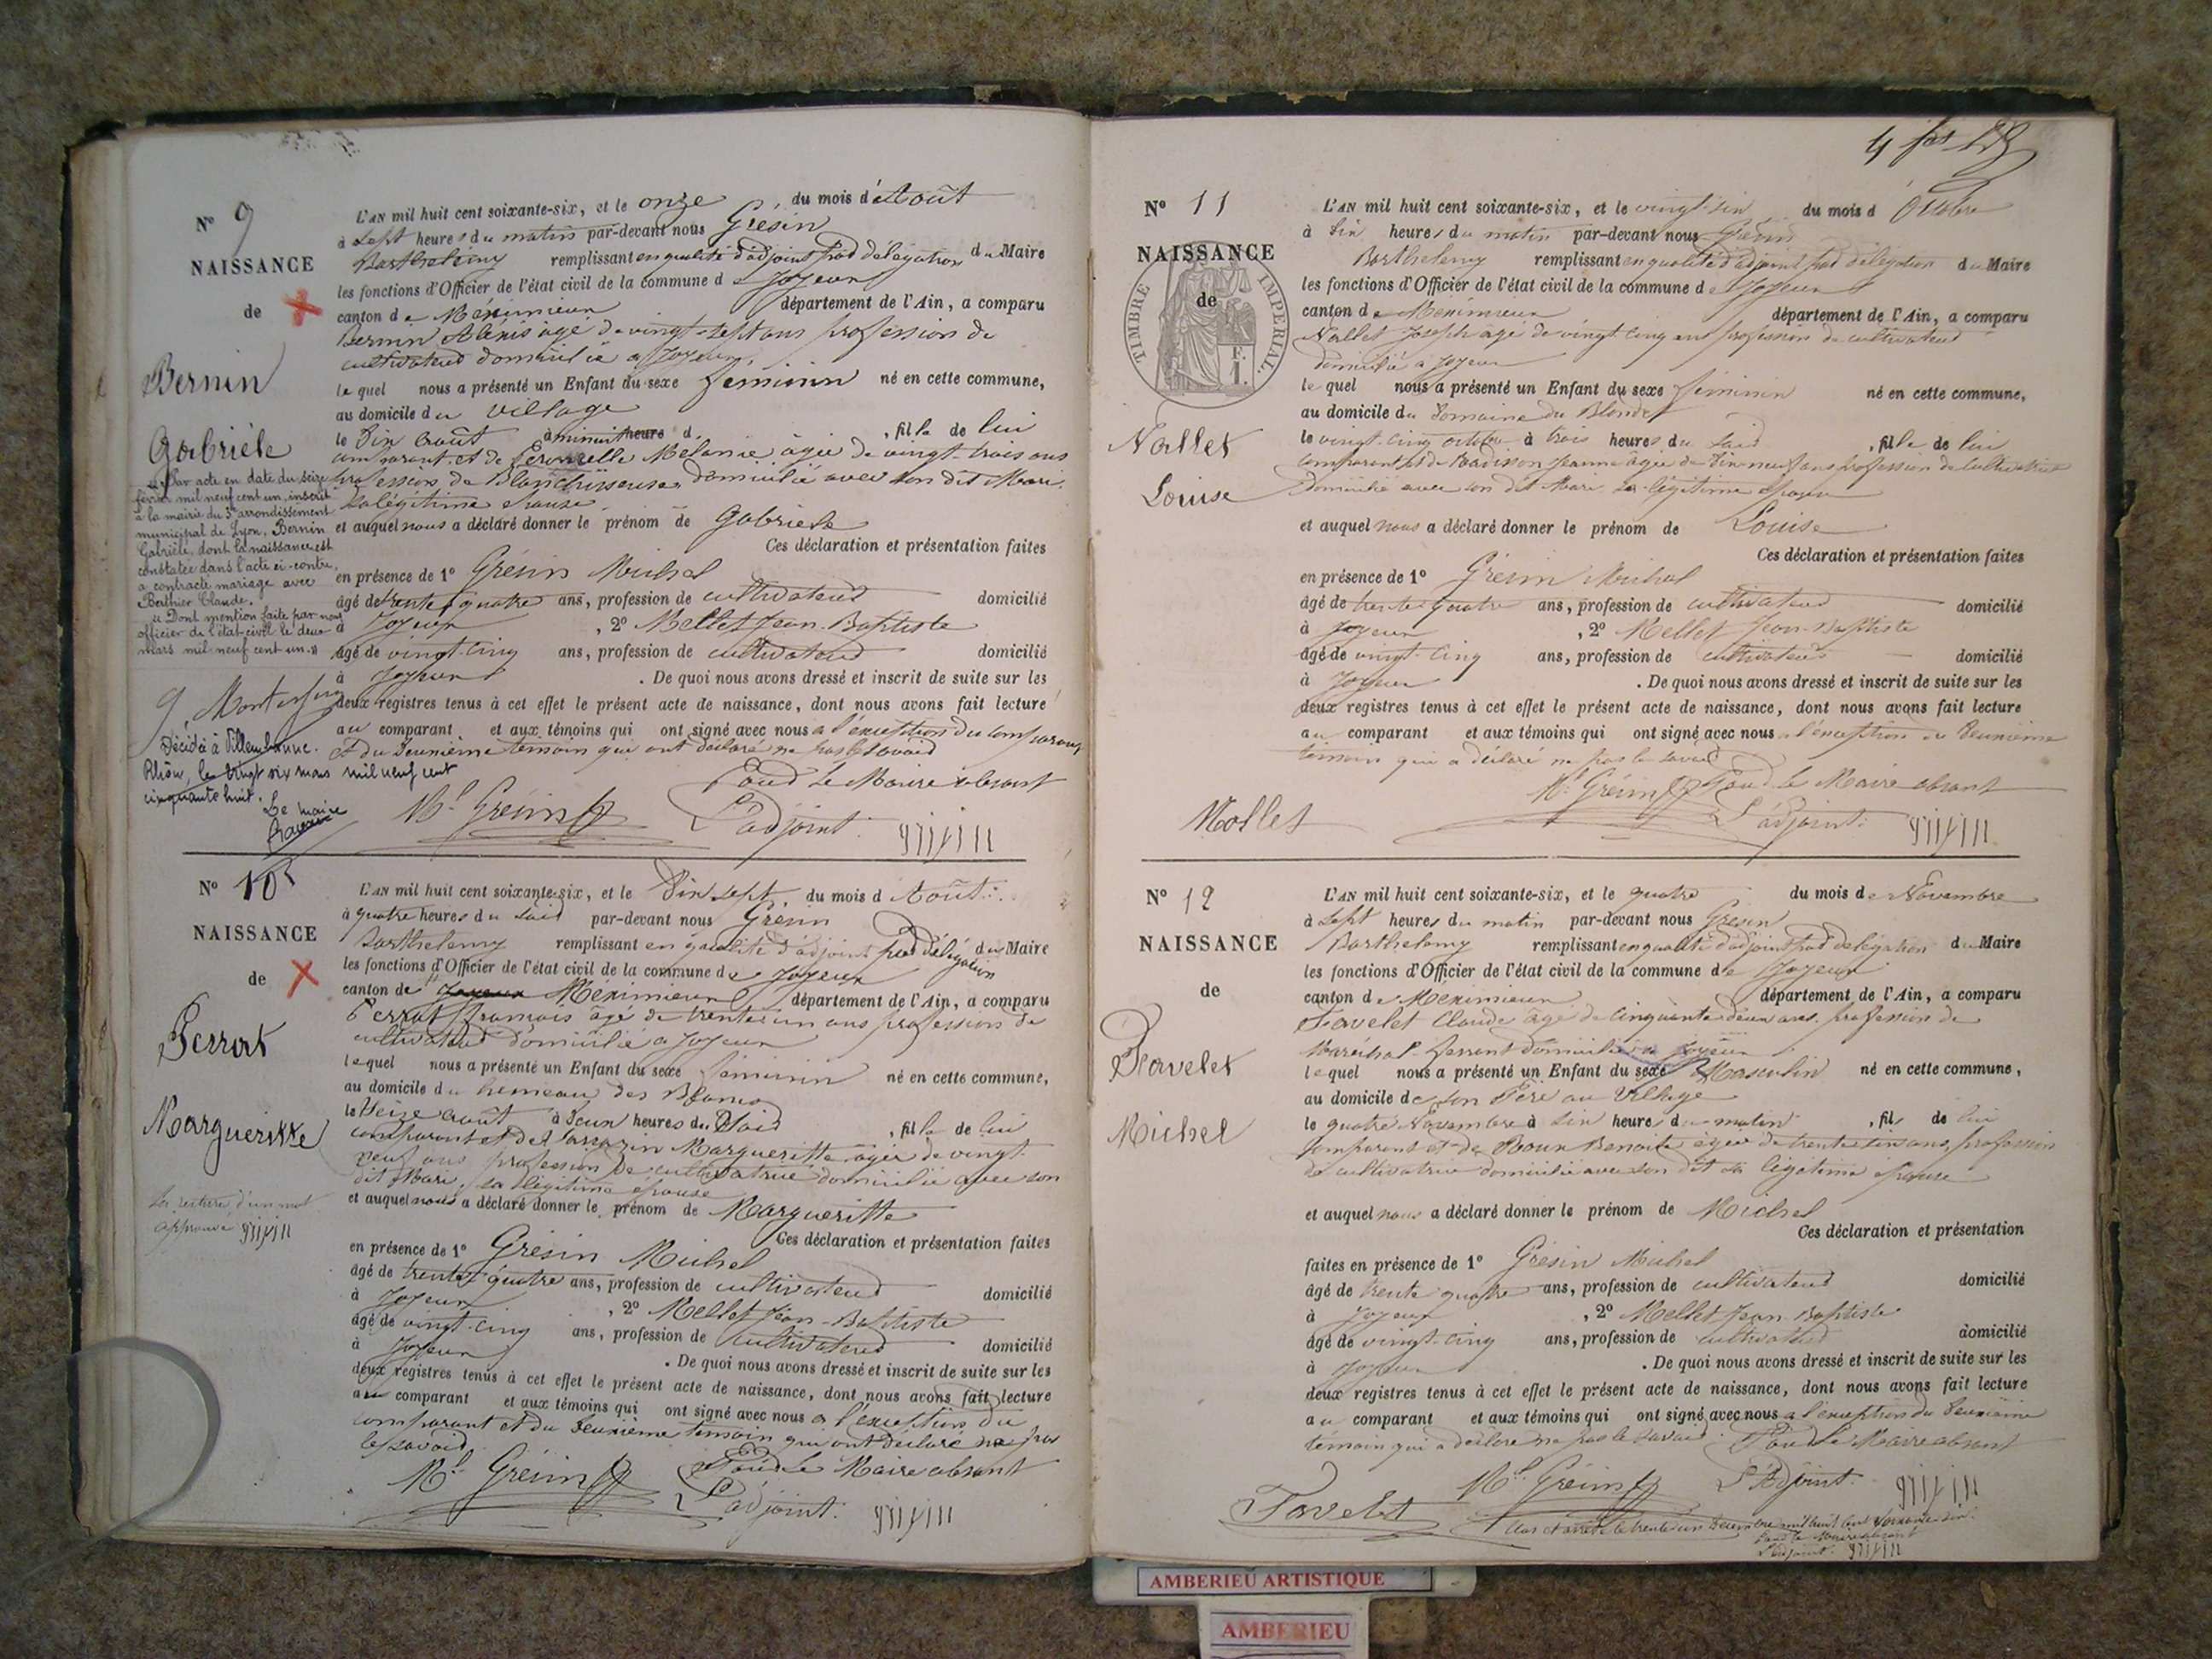 N° 9
NAISSANCE
de
Bernin
Gabrièle
L'AN mil huit cent soixante-six, et le onze du mois d'Août
à sept heures du matin par-devant nous Grésin
Barthelemy remplissant en qualité d'adjoint par délégation du Maire
les fonctions d'Officier de l'état civil de la commune de Joyeux
canton de Méximieux département de l'Ain, a comparu
Bernin Alexis agé de vingt-sept ans profession de
cultivateur domicilié à Joyeux,
lequel nous a présenté un Enfant du sexe féminin né en cette commune,
au domicile du village
le Dix Août à minuit heure d , fille de lui
comparant et de Melanie agée de vingt-trois ans
profession de Blanchisseuse domicilié avec son dit Mari
sa légitime épouse
et auquel nous a déclaré donner le prénom de Gabriele
Ces déclaration et présentation faites
en présence de 1° Grésin Michel
âgé de trente quatre ans, profession de cultivateur domicilié
à Joyeux , 2° Mellet Jean-Baptiste
âgé de vingt-cinq ans, profession de cultivateur domicilié
à Joyeux . De quoi nous avons dressé et inscrit de suite sur les
deux registres tenus à cet effet le présent acte de naissance, dont nous avons fait lecture
au comparant et aux témoins qui ont signé avec nous à l'exception du comparant
et du Deuxième témoin qui ont déclaré ne pas le savoir
Pour le Maire absent
Ml Grésin L'adjoint:
Par acte en date du seize
février mil neuf cent un, inscrit
à la mairie du 3e arrondissement
municipal de Lyon, Bernin
Gabrièle, dont la naissance est
constatée dans l'acte ci-contre,
a contracté mariage avec
Berthier Claude.
Dont mention faite par nous
officier de l'état-civil le deux
mars mil neuf cent un.
Décédée à Villeurbanne.
Rhône, le vingt six mars mil neuf cent
cinquante huit.
Le maire
N° 10
NAISSANCE
de
Perrot
Margueritte
L'AN mil huit cent soixante-six, et le Dix sept du mois d Août
à quatre heures du soir par-devant nous Grésin
Barthelemy remplissant en qualité d'adjoint par délégation du Maire
les fonctions d'Officier de l'état civil de la commune de Joyeux
canton de Joyeux Méximieux département de l'Ain, a comparu
Perrot François agé de trente un ans profession de
cultivateur domicilié à Joyeux
lequel nous a présenté un Enfant du sexe féminin né en cette commune,
au domicile du hameau des Blancs
le seize août à Deux heures du soir , fille de lui
comparant et de Margueritte agée de vingt
neuf ans profession de cultivatrice domicilié avec son
dit Mari, sa légitime épouse
et auquel nous a déclaré donner le prénom de Margueritte
Ces déclaration et présentation faites
en présence de 1° Grésin Michel
âgé de trente quatre ans, profession de cultivateur domicilié
à Joyeux , 2° Mellet Jean-Baptiste
âgé de vingt-cinq ans, profession de cultivateur domicilié
à Joyeux . De quoi nous avons dressé et inscrit de suite sur les
deux registres tenus à cet effet le présent acte de naissance, dont nous avons fait lecture
au comparant et aux témoins qui ont signé avec nous à l'exception du
comparant et du Deuxième témoin qui ont déclaré ne pas
le savoir
Pour le Maire absent
Ml Grésin L'adjoint:
La rature d'un mot
approuvé
N° 11
NAISSANCE
de
TIMBRE IMPERIAL
F. 1.
Nallet
Louise
L'AN mil huit cent soixante-six, et le vingt-six du mois d'Octobre
à six heures du matin par-devant nous Grésin
Barthelemy remplissant en qualité d'adjoint par délégation du Maire
les fonctions d'Officier de l'état civil de la commune de Joyeux
canton de Méximieux département de l'Ain, a comparu
Nallet Joseph agé de vingt cinq ans profession de cultivateur
domicilié à Joyeux
lequel nous a présenté un Enfant du sexe féminin né en cette commune,
au domicile du Domaine du Blondet
le vingt-cinq octobre à trois heures du soir , fille de lui
comparant et de Jeanne agée de Dix-neuf ans profession de cultivatrice
domicilié avec son dit Mari sa légitime épouse
et auquel nous a déclaré donner le prénom de Louise
Ces déclaration et présentation faites
en présence de 1° Grésin Michel
âgé de trente quatre ans, profession de cultivateur domicilié
à Joyeux , 2° Mellet Jean-Baptiste
âgé de vingt-cinq ans, profession de cultivateur domicilié
à Joyeux . De quoi nous avons dressé et inscrit de suite sur les
deux registres tenus à cet effet le présent acte de naissance, dont nous avons fait lecture
au comparant et aux témoins qui ont signé avec nous à l'exception du Deuxième
témoin qui a déclaré ne pas le savoir
Ml Grésin Pour le Maire absent
L'adjoint:
N° 12
NAISSANCE
de
Favelet
Michel
L'AN mil huit cent soixante-six, et le quatre du mois de Novembre
à sept heures du matin par-devant nous Grésin
Barthelemy remplissant en qualité d'adjoint par délégation du Maire
les fonctions d'Officier de l'état civil de la commune de Joyeux
canton de Méximieux département de l'Ain, a comparu
Favelet Claude agé de cinquante deux ans profession de
Maréchal-ferrant domicilié à Joyeux
lequel nous a présenté un Enfant du sexe Masculin né en cette commune,
au domicile de son Père au Village
le quatre Novembre à six heures du matin , fils de lui
comparant et de Roux Benoite agée de trente ans, profession
de cultivatrice domicilié avec son dit sa légitime épouse
et auquel nous a déclaré donner le prénom de Michel
Ces déclaration et présentation
faites en présence de 1° Grésin Michel
âgé de trente quatre ans, profession de cultivateur domicilié
à Joyeux , 2° Mellet Jean Baptiste
âgé de vingt-cinq ans, profession de cultivateur domicilié
à Joyeux . De quoi nous avons dressé et inscrit de suite sur les
deux registres tenus à cet effet le présent acte de naissance, dont nous avons fait lecture
au comparant et aux témoins qui ont signé avec nous à l'exception du Deuxième
témoin qui a déclaré ne pas le savoir. Pour le Maire absent
Favelet Ml Grésin L'Adjoint:
Clos et arrêté le trente un Décembre mil huit cent soixante-six.
Pour le Maire absent
L'adjoint:
AMBERIEU ARTISTIQUE
AMBERIEU